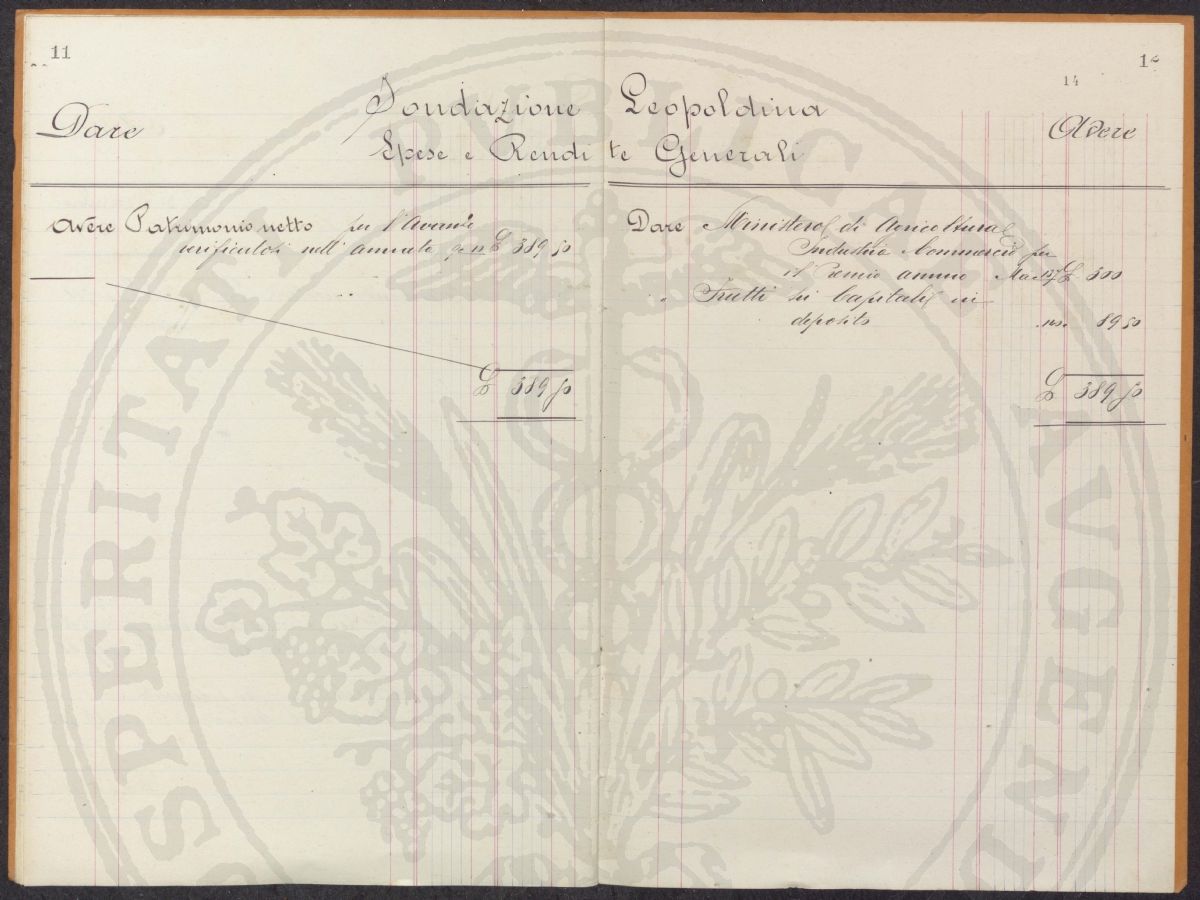 11
14
Fondazione Leopoldina
Dare
Avere
Spese e Rendite Generali
Avere Patrimonio netto per l'Avanzo
verificatosi nell'annata £ 389 50
£ 389 50
Dare Ministero di Agricoltura
Industria Commercio per
il Premio annuo £ 300
" Frutti di Capitali in
deposito 89 50
£ 389 50
PROSPERITATI PUBLICAE AVGENDAE